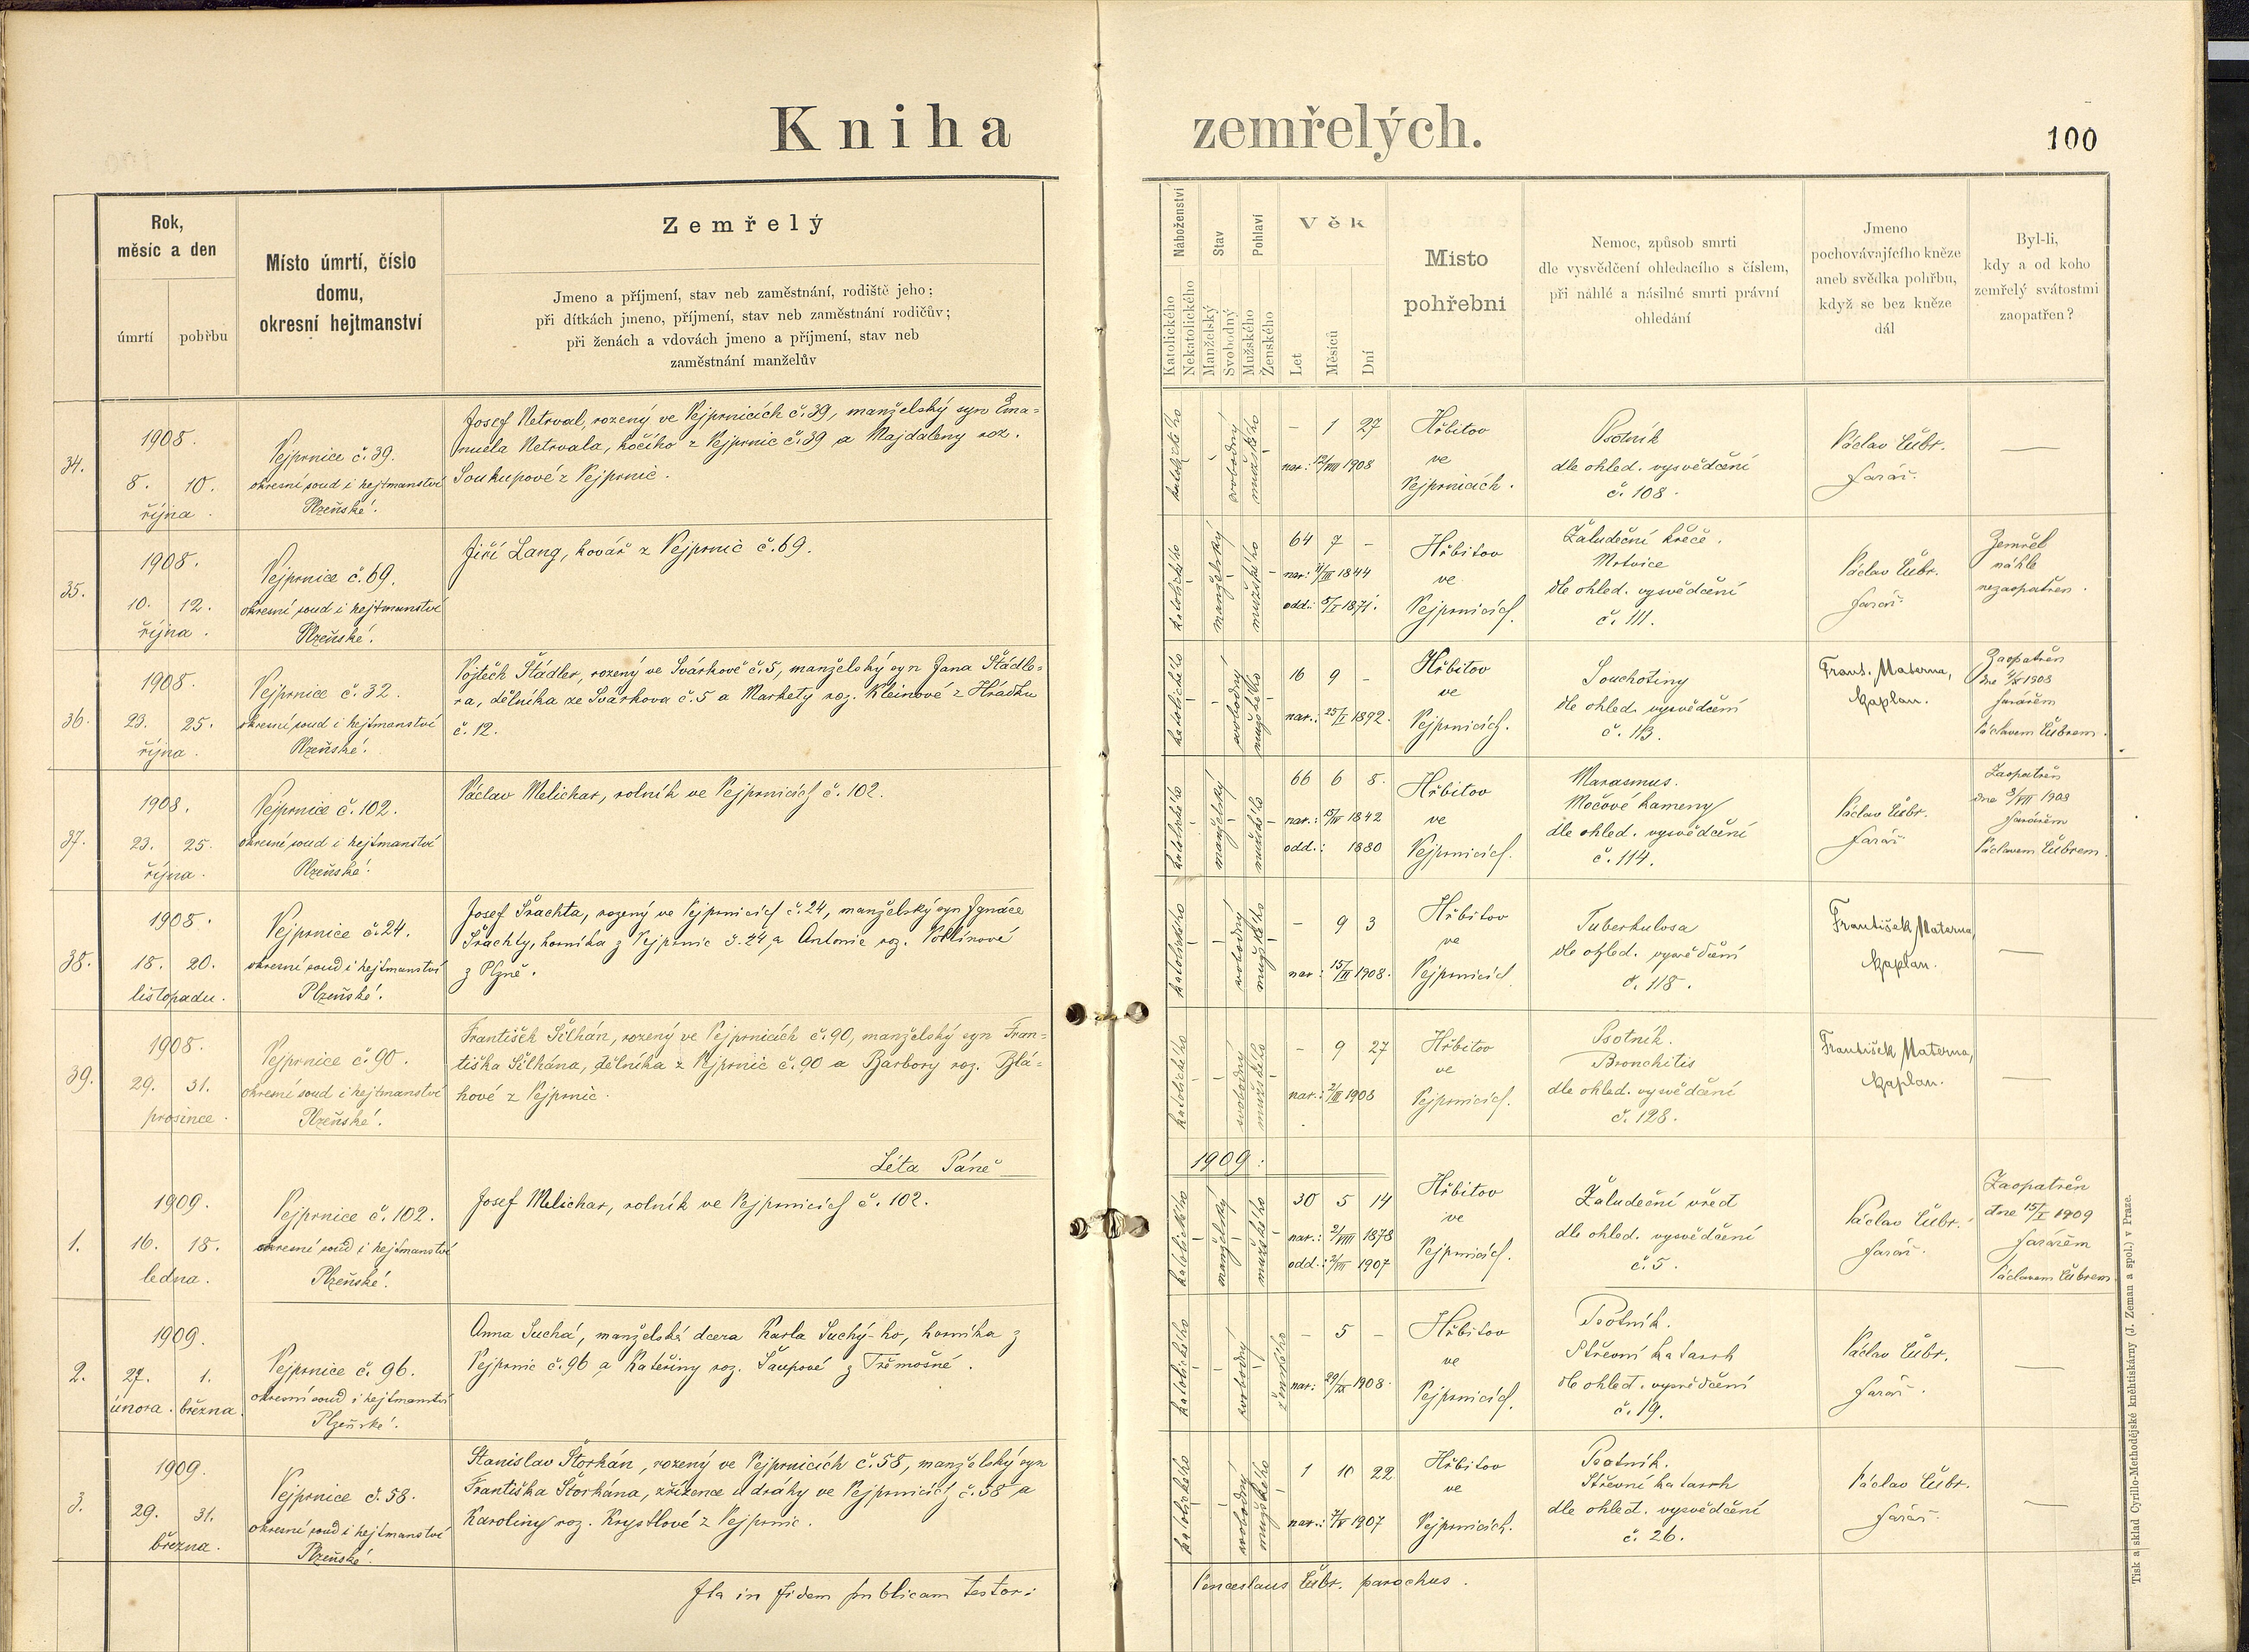 Kniha zemřelých.
100
Rok,
měsíc a den
úmrtí
pohřbu
Místo úmrtí, číslo
domu,
okresní hejtmanství
Zemřelý
Jmeno a příjmení, stav neb zaměstnání, rodiště jeho;
při dítkách jmeno, příjmení, stav neb zaměstnání rodičův;
při ženách a vdovách jmeno a příjmení, stav neb
zaměstnání manželův
Náboženství
Katolického
Nekatolického
Stav
Manželský
Svobodný
Pohlaví
Mužského
Ženského
Věk
Let
Měsíců
Dní
Místo
pohřební
Nemoc, způsob smrti
dle vysvědčení ohledacího s číslem,
při náhlé a násilné smrti právní
ohledání
Jmeno
pochovávajícího kněze
aneb svědka pohřbu,
když se bez kněze
dál
Byl-li,
kdy a od koho
zemřelý svátostmi
zaopatřen?
34.
1908.
8. 10.
října.
Vejprnice č. 39.
okresní soud i hejtmanství
Plzeňské.
Josef Netrval, rozený ve Vejprnicích č. 39, manželský syn Ema-
nuela Netrvala, kočího z Vejprnic č. 39 a Majdaleny roz.
Soukupové z Vejprnic.
katolického
svobodný
mužského
– 1 27
nar.: 12/VIII 1908
Hřbitov
ve
Vejprnicích.
Psotník
dle ohled. vysvědčení
č. 108.
Václav Čubr.
farář.
—
35.
1908.
10. 12.
října.
Vejprnice č. 69.
okresní soud i hejtmanství
Plzeňské.
Jiří Lang, kovář z Vejprnic č. 69.
katolického
manželský
mužského
64 7 -
nar: 11/III 1844
odd.: 8/I 1871.
Hřbitov
ve
Vejprnicích.
Žaludeční křeče.
Mrtvice
dle ohled. vysvědčení
č. 111.
Václav Čubr.
farář.
Zemřel
náhle
nezaopatřen.
36.
1908.
23. 25.
října.
Vejprnice č. 32.
okresní soud i hejtmanství
Plzeňské.
Vojtěch Štádler, rozený ve Svárkově č. 5, manželský syn Jana Štádle-
ra, dělníka ze Svárkova č. 5 a Markety roz. Kleinové z Hrádku
č. 12.
katolického
svobodný
mužského
16 9 -
nar.: 25/I 1892.
Hřbitov
ve
Vejprnicích.
Souchotiny
dle ohled. vysvědčení
č. 113.
Frant. Materna,
kaplan.
Zaopatřen
dne 1908
farářem
Václavem Čubrem.
37.
1908.
23. 25.
října.
Vejprnice č. 102.
okresní soud i hejtmanství
Plzeňské.
Václav Melichar, rolník ve Vejprnicích č. 102.
katolského
manželský
mužského
66 6 8.
nar.: 15/IV 1842
odd.: 1880
Hřbitov
ve
Vejprnicích.
Marasmus.
Močové kameny
dle ohled. vysvědčení
č. 114.
Václav Čubr.
farář
Zaopatřen
dne 3/VIII 1908
farářem
Václavem Čubrem.
38.
1908.
18. 20.
listopadu.
Vejprnice č. 24.
okresní soud i hejtmanství
Plzeňské.
Josef Šrachta, rozený ve Vejprnicích č. 24, manželský syn Ignáce
Šrachty, horníka z Vejprnic č. 24 a Antonie roz.
z Plzně.
katolického
svobodný
mužského
– 9 3
nar: 15/II 1908.
Hřbitov
ve
Vejprnicích
Tuberkulosa
dle ohled. vysvědčení
č. 118.
František Materna,
kaplan.
—
39.
1908.
29. 31.
prosince.
Vejprnice č. 90.
okresní soud i hejtmanství
Plzeňské.
František Šilhán, rozený ve Vejprnicích č. 90, manželský syn Fran-
tiška Šilhána, dělníka z Vejprnic č. 90 a Barbory roz. Blá-
hové z Vejprnic.
katolického
svobodný
mužského
– 9 27
nar.: 2/III 1908
Hřbitov
ve
Vejprnicích.
Psotník.
Bronchitis
dle ohled. vysvědčení
č. 128.
František Materna,
kaplan.
—
Léta Páně 1909:
1.
1909.
16. 18.
ledna.
Vejprnice č. 102.
okresní soud i hejtmanství
Plzeňské.
Josef Melichar, rolník ve Vejprnicích č. 102.
katolického
manželský
mužského
30 5 14
nar.: 2/VIII 1878
odd.: 1907
Hřbitov
ve
Vejprnicích.
Žaludeční vřed
dle ohled. vysvědčení
č. 5.
Václav Čubr.
farář.
Zaopatřen
dne 15/I 1909
farářem
Václavem Čubrem.
2.
1909.
27. 1.
února. března.
Vejprnice č. 96.
okresní soud i hejtmanství
Plzeňské.
Anna Suchá, manželská dcera Karla Suchý-ho, horníka z
Vejprnic č. 96 a Kateřiny roz. Šaupové z Třemošné.
katolického
svobodný
ženského
– 5 –
nar: 29/IX 1908.
Hřbitov
ve
Vejprnicích.
Psotník.
Střevní katarrh
dle ohled. vysvědčení
č. 19.
Václav Čubr.
farář.
—
3.
1909.
29. 31.
března.
Vejprnice č. 58.
okresní soud i hejtmanství
Plzeňské.
Stanislav Štorkán, rozený ve Vejprnicích č. 58, manželský syn
Františka Štorkána, zřízence u dráhy ve Vejprnicích č. 58 a
Karoliny roz. Krystlové z Vejprnic.
katolického
svobodný
mužského
1 10 22
nar.: 7/V 1907
Hřbitov
ve
Vejprnicích.
Psotník.
Střevní katarrh
dle ohled. vysvědčení
č. 26.
Václav Čubr.
farář.
—
Ita in fidem publicam testor: Venceslaus Čubr. parochus.
Tisk a sklad Cyrillo-Methodějské kněhtiskárny (J. Zeman a spol.) v Praze.